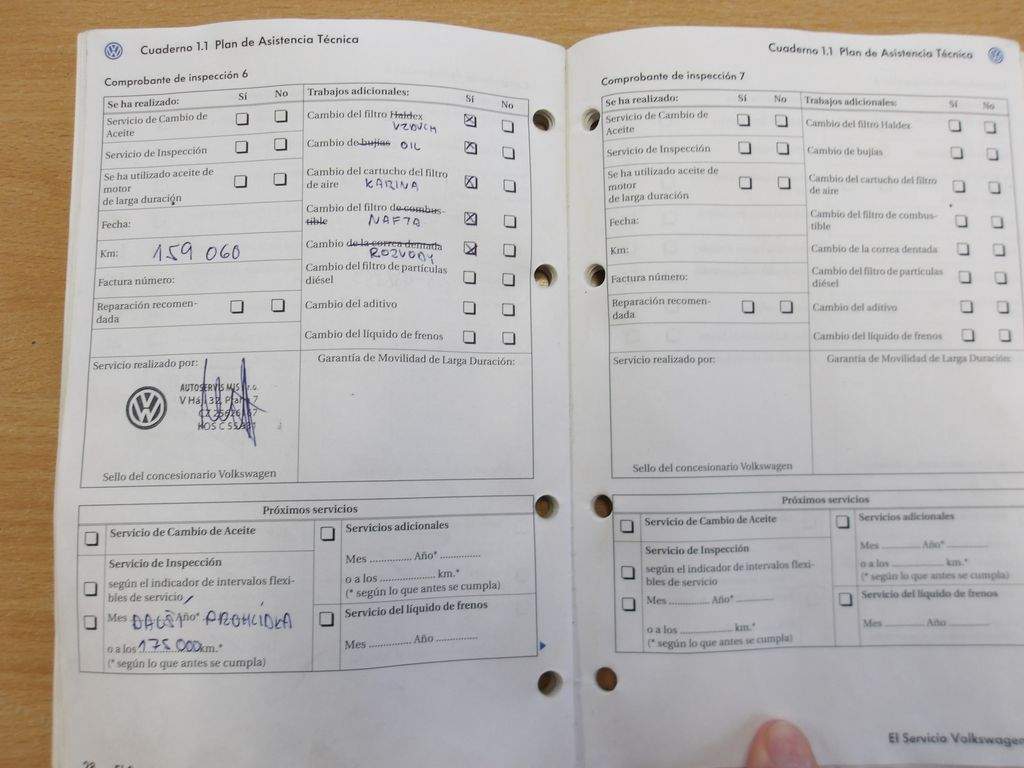 Cuaderno 1.1 Plan de Asistencia Técnica
Comprobante de inspección 6
Se ha realizado: Sí No
Servicio de Cambio de
Aceite
Servicio de Inspección
Se ha utilizado aceite de
motor
de larga duración
Fecha:
Km: 159 060
Factura número:
Reparación recomen-
dada
Trabajos adicionales: Sí No
Cambio del filtro Haldex
VZDUCH
Cambio de bujías OIL
Cambio del cartucho del filtro
de aire KABINA
Cambio del filtro de combus-
tible NAFTA
Cambio de la correa dentada
ROZVODY
Cambio del filtro de partículas
diésel
Cambio del aditivo
Cambio del líquido de frenos
Servicio realizado por:
AUTOSERVIS
Sello del concesionario Volkswagen
Garantía de Movilidad de Larga Duración:
Próximos servicios
Servicio de Cambio de Aceite
Servicio de Inspección
según el indicador de intervalos flexi-
bles de servicio
Mes DALŠÍ Año* PROHLÍDKA
o a los 175 000 km.*
(* según lo que antes se cumpla)
Servicios adicionales
Mes .............. Año* ..............
o a los .................... km.*
(* según lo que antes se cumpla)
Servicio del líquido de frenos
Mes .............. Año ..............
Cuaderno 1.1 Plan de Asistencia Técnica
Comprobante de inspección 7
Se ha realizado: Sí No
Servicio de Cambio de
Aceite
Servicio de Inspección
Se ha utilizado aceite de
motor
de larga duración
Fecha:
Km:
Factura número:
Reparación recomen-
dada
Trabajos adicionales: Sí No
Cambio del filtro Haldex
Cambio de bujías
Cambio del cartucho del filtro
de aire
Cambio del filtro de combus-
tible
Cambio de la correa dentada
Cambio del filtro de partículas
diésel
Cambio del aditivo
Cambio del líquido de frenos
Servicio realizado por:
Sello del concesionario Volkswagen
Garantía de Movilidad de Larga Duración:
Próximos servicios
Servicio de Cambio de Aceite
Servicio de Inspección
según el indicador de intervalos flexi-
bles de servicio
Mes .............. Año* ..............
o a los .................... km.*
(* según lo que antes se cumpla)
Servicios adicionales
Mes .............. Año* ..............
o a los .................... km.*
(* según lo que antes se cumpla)
Servicio del líquido de frenos
Mes .............. Año ..............
El Servicio Volkswagen